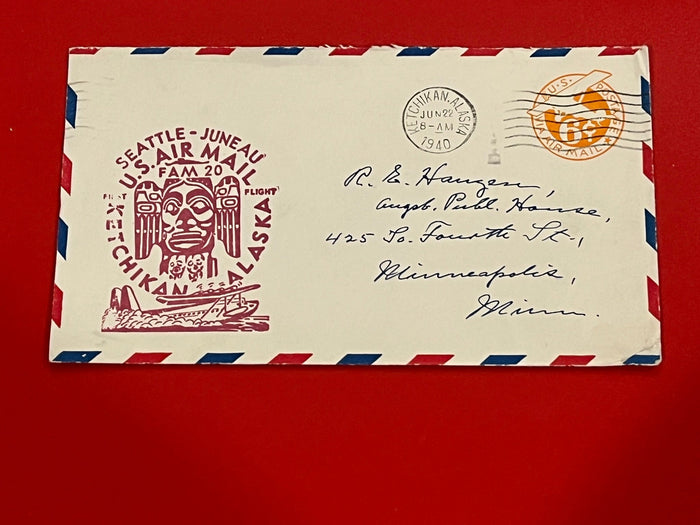 SEATTLE - JUNEAU
U.S. AIR MAIL
FAM 20
FIRST FLIGHT
KETCHIKAN ALASKA
KETCHIKAN, ALASKA
JUN 22
8-AM
1940
U.S. POSTAGE
6¢
VIA AIR MAIL
R. E. Haugen,
Augsb. Publ. House,
425 So. Fourth St.,
Minneapolis,
Minn.